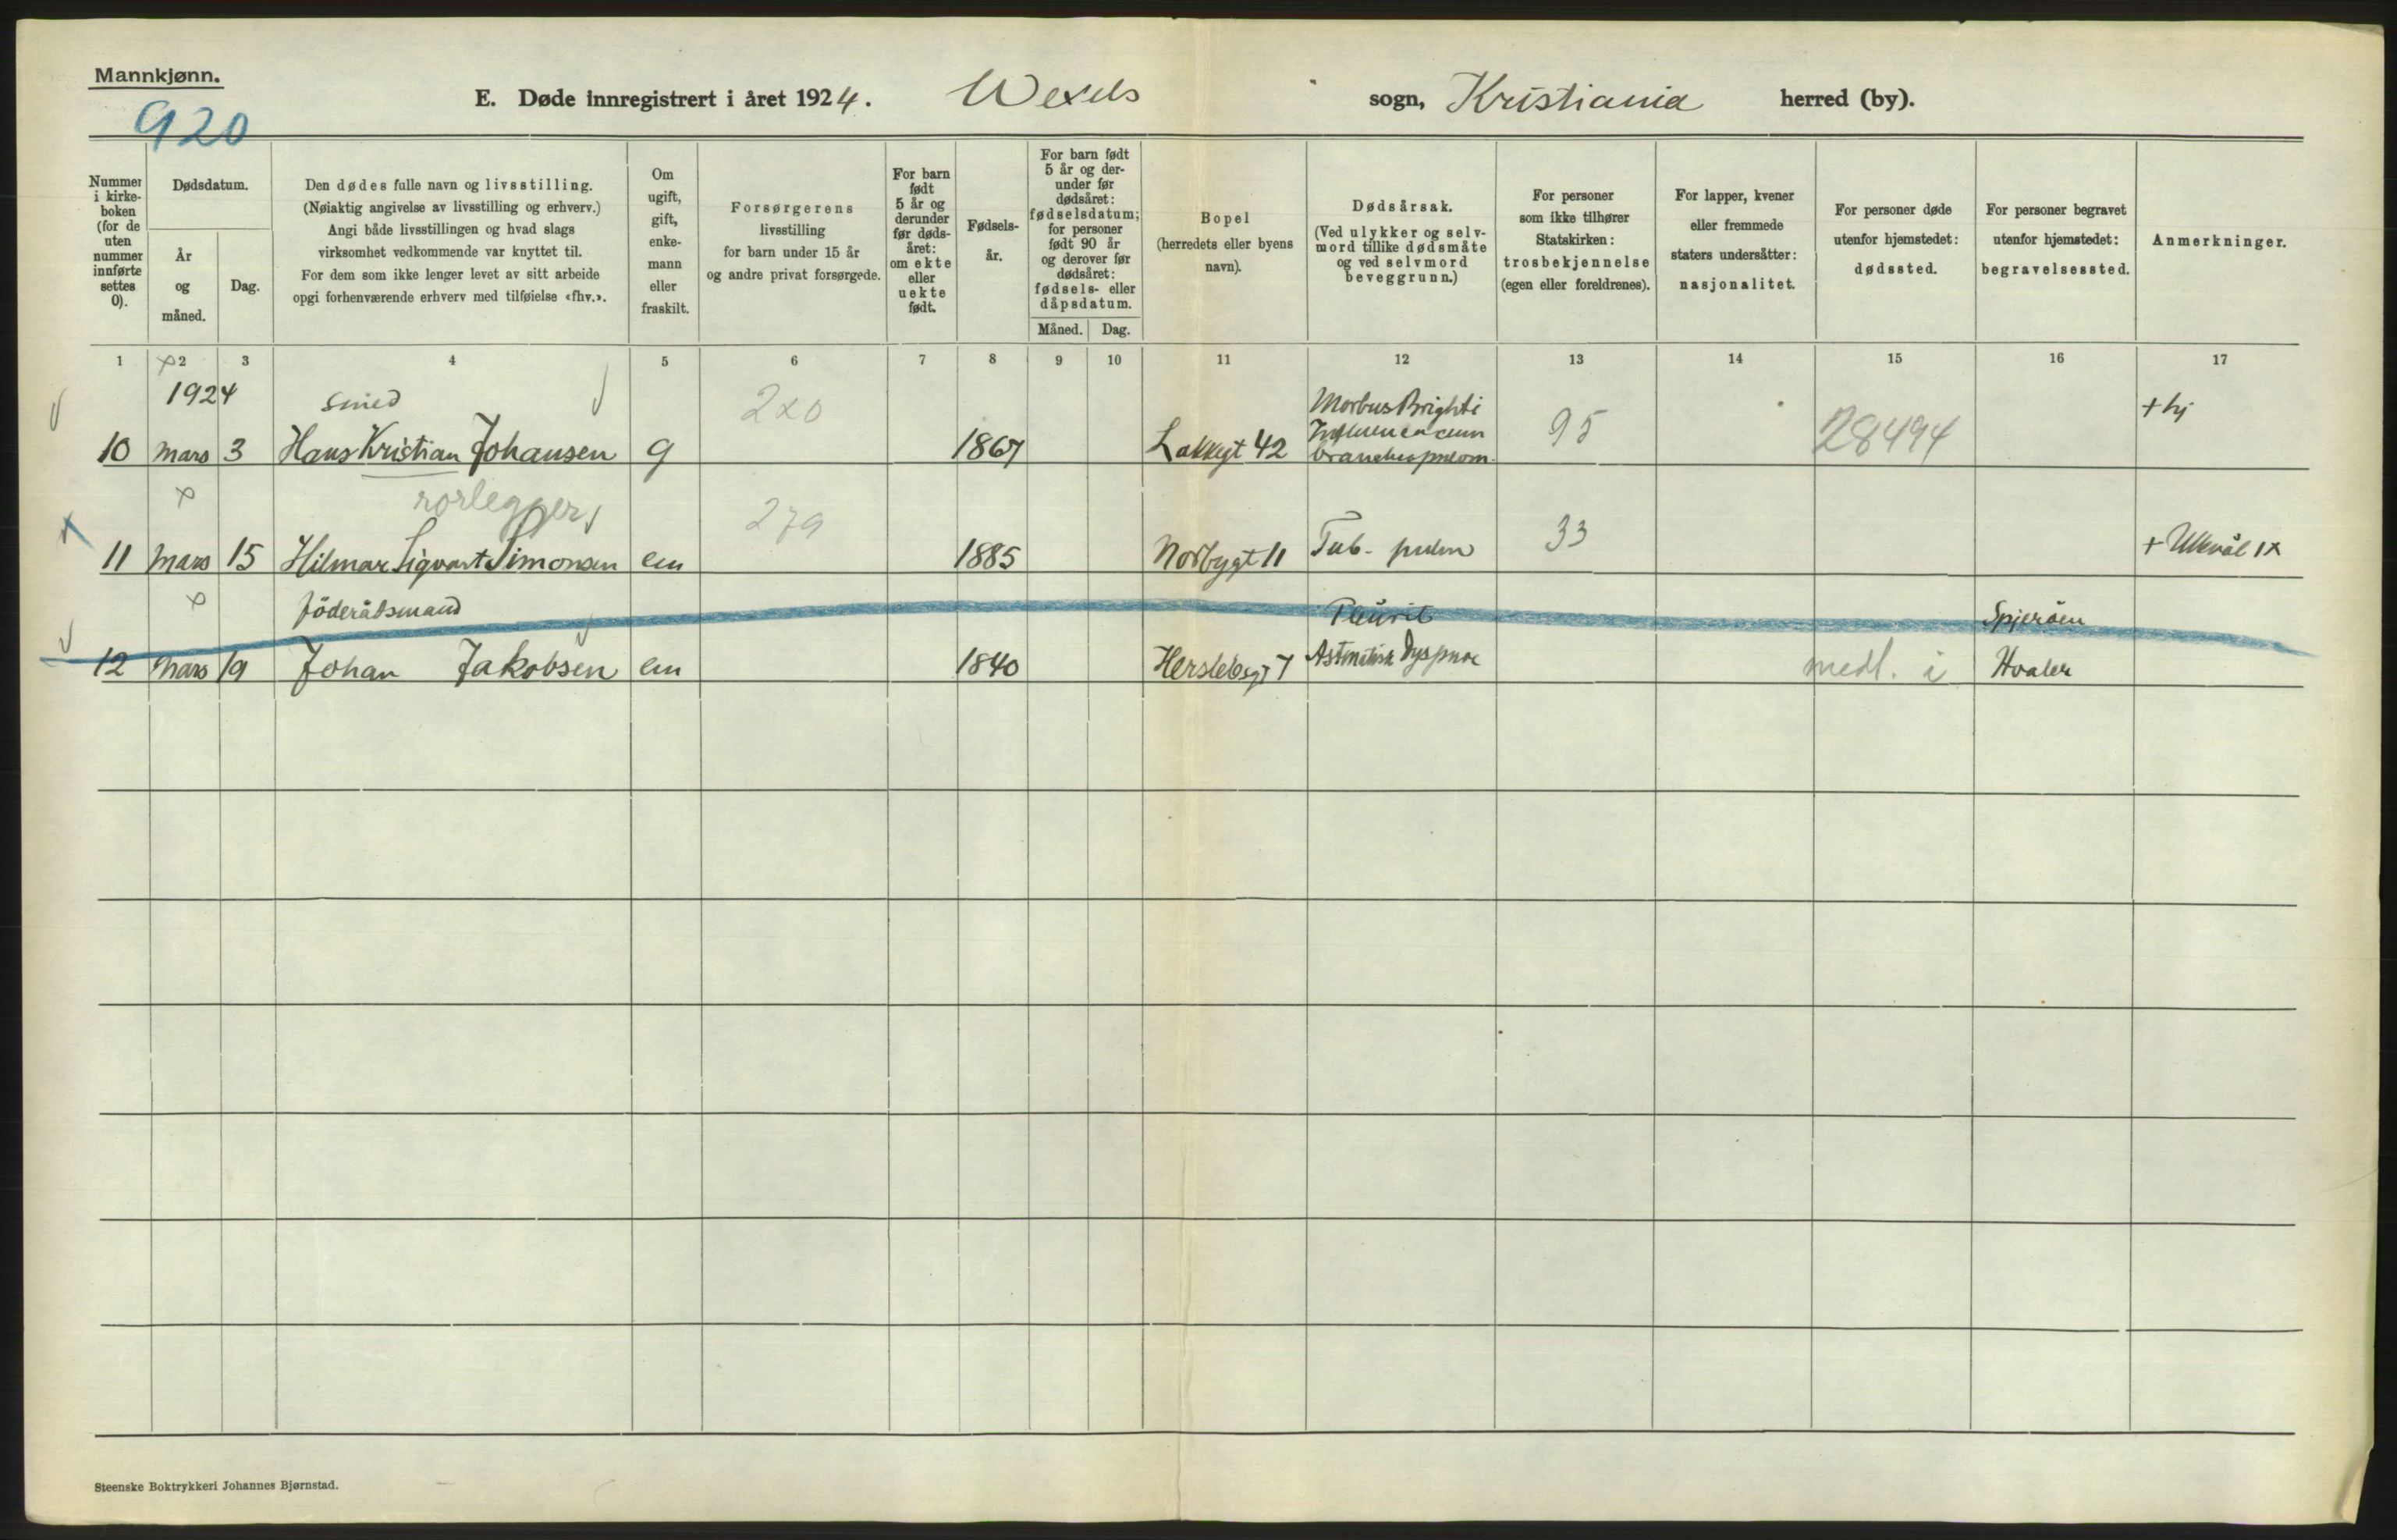 Mannkjønn.
920
E. Døde innregistrert i året 1924. Wexels sogn, Kristiania herred (by).
Nummer
i kirke-
boken
(for de
uten
nummer
innførte
settes
0).
Dødsdatum.
År
og
måned.
Dag.
Den dødes fulle navn og livsstilling.
(Nøiaktig angivelse av livsstilling og erhverv.)
Angi både livsstillingen og hvad slags
virksomhet vedkommende var knyttet til.
For dem som ikke lenger levet av sitt arbeide
opgi forhenværende erhverv med tilføielse «fhv.».
Om
ugift,
gift,
enke-
mann
eller
fraskilt.
Forsørgerens
livsstilling
for barn under 15 år
og andre privat forsørgede.
For barn
født
5 år og
derunder
før døds-
året:
om ekte
eller
uekte
født.
Fødsels-
år.
For barn født
5 år og der-
under før
dødsåret:
fødselsdatum;
for personer
født 90 år
og derover før
dødsåret:
fødsels- eller
dåpsdatum.
Måned. Dag.
Bopel
(herredets eller byens
navn).
Dødsårsak.
(Ved ulykker og selv-
mord tillike dødsmåte
og ved selvmord
beveggrunn.)
For personer
som ikke tilhører
Statskirken:
trosbekjennelse
(egen eller foreldrenes).
For lapper, kvener
eller fremmede
staters undersåtter:
nasjonalitet.
For personer døde
utenfor hjemstedet:
dødssted.
For personer begravet
utenfor hjemstedet:
begravelsessted.
Anmerkninger.
1 2 3 4 5 6 7 8 9 10 11 12 13 14 15 16 17
1924 smed 220 Morbus Brighti + hj
Influenca cum
10 mars 3 Hans Kristian Johansen g 1867 Lakkgt 42 bronchopneom. 95 28494
rørlegger 279
11 mars 15 Hilmar Sigvart Simonsen em 1885 Norbygt 11 Tub. pulm 33 + Ullevål 1x
Föderådsmand Pleurit Spjerøen
12 mars 19 Johan Jakobsen em 1840 Herslebsgt 7 Astmatisk Dyspnoe medl. i Hvaler
Steenske Boktrykkeri Johannes Bjørnstad.